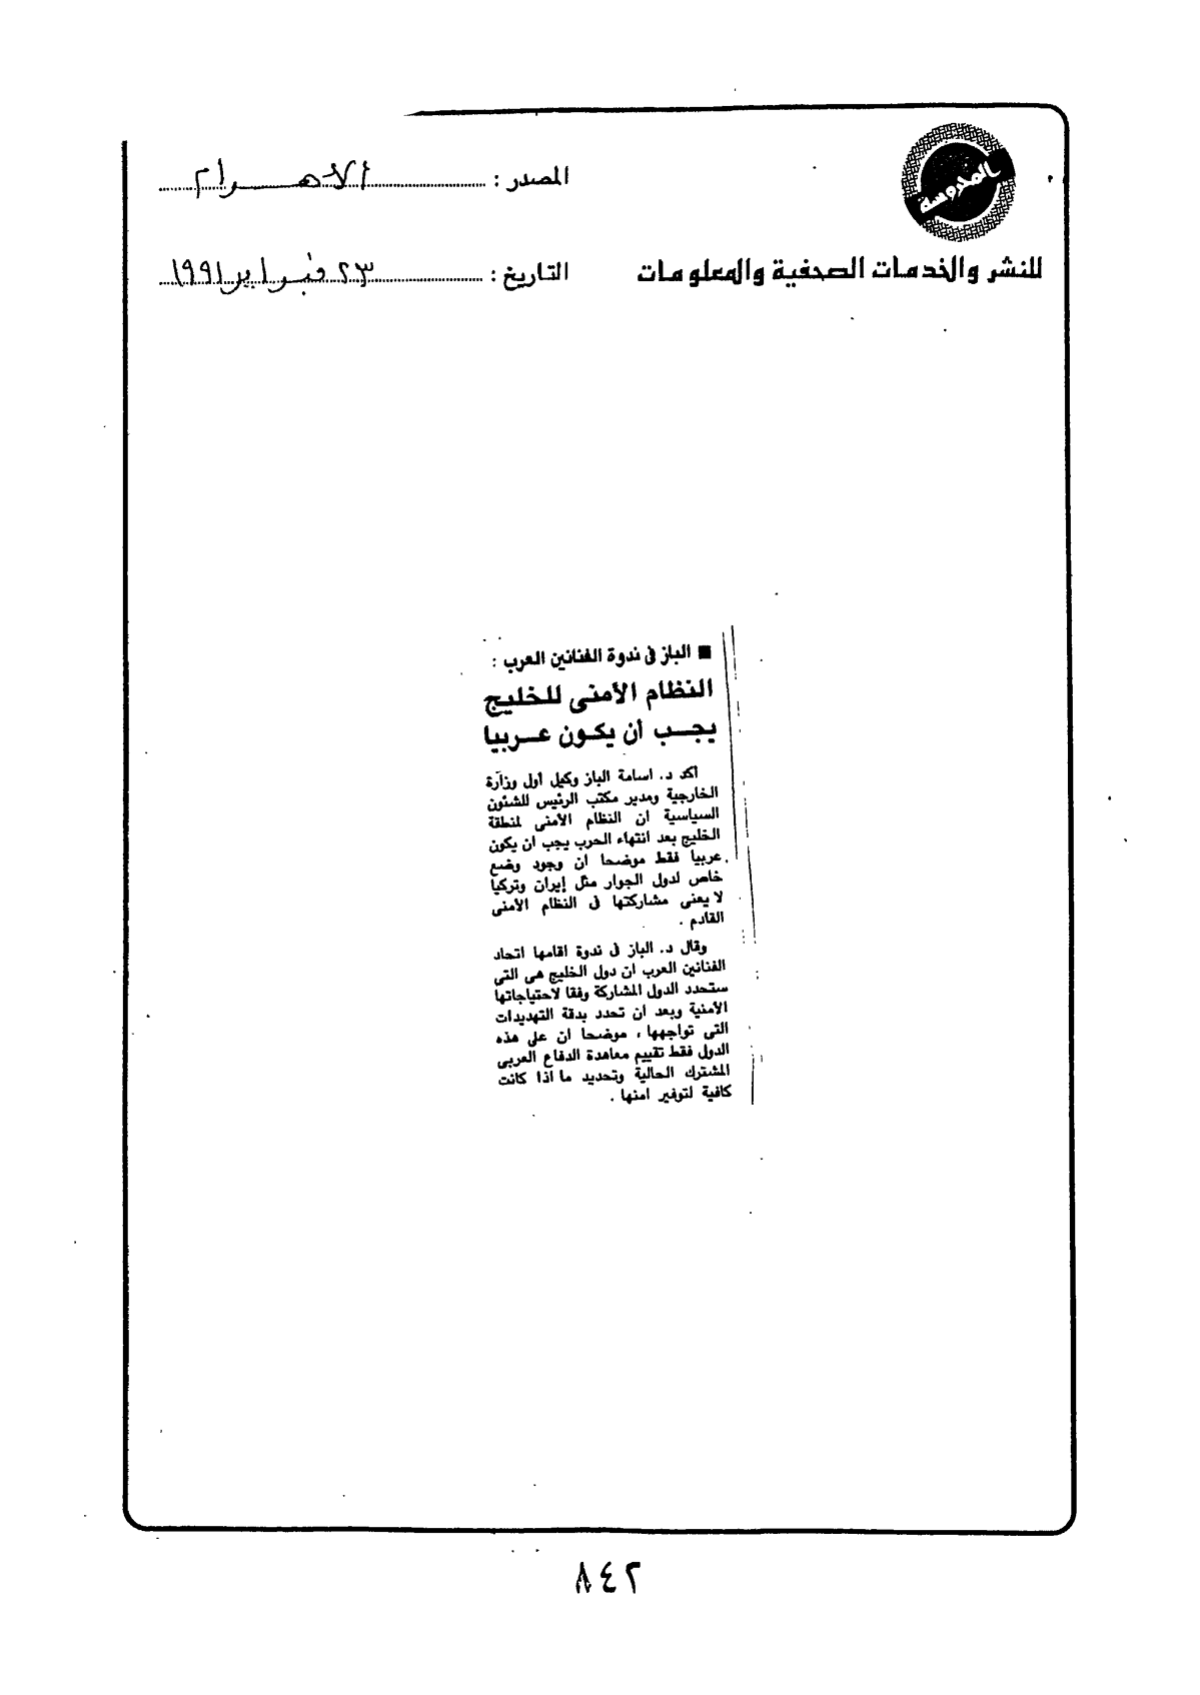 المحروسة
للنشر والخدمات الصحفية والمعلومات
المصدر : الأهـــرام
التاريخ : ٢٣ فبراير ١٩٩١
■ الباز فى ندوة الفنانين العرب :
النظام الأمنى للخليج
يجـــب أن يكـون عـــربيا
أكد د. اسامة الباز وكيل أول وزارة
الخارجية ومدير مكتب الرئيس للشئون
السياسية ان النظام الأمنى لمنطقة
الخليج بعد انتهاء الحرب يجب ان يكون
عربيا فقط موضحا ان وجود وضع
خاص لدول الجوار مثل إيران وتركيا
لا يعنى مشاركتها فى النظام الأمنى
القادم .
وقال د. الباز فى ندوة اقامها اتحاد
الفنانين العرب ان دول الخليج هى التى
ستحدد الدول المشاركة وفقا لاحتياجاتها
الأمنية وبعد ان تحدد بدقة التهديدات
التى تواجهها ، موضحا ان على هذه
الدول فقط تقييم معاهدة الدفاع العربى
المشترك الحالية وتحديد ما اذا كانت
كافية لتوفير امنها .
٨٤٢